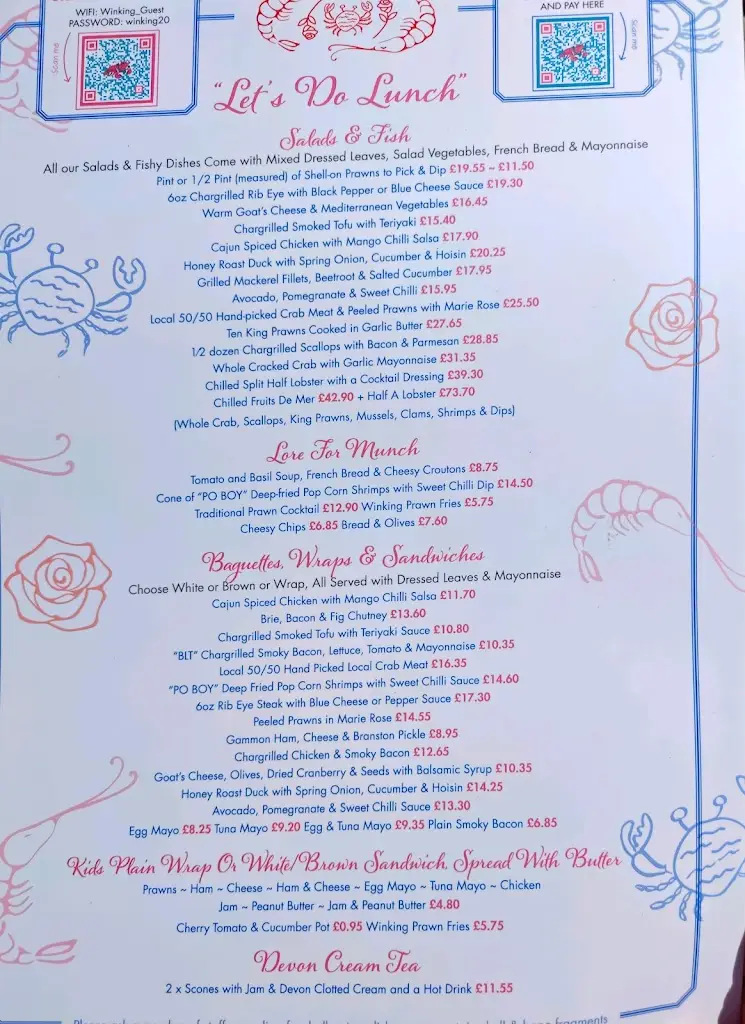 WIFI: Winking_Guest
PASSWORD: winking20
Scan me
AND PAY HERE
Scan me
"Let's Do Lunch"
Salads & Fish
All our Salads & Fishy Dishes Come with Mixed Dressed Leaves, Salad Vegetables, French Bread & Mayonnaise
Pint or 1/2 Pint (measured) of Shell-on Prawns to Pick & Dip £19.55 ~ £11.50
6oz Chargrilled Rib Eye with Black Pepper or Blue Cheese Sauce £19.30
Warm Goat's Cheese & Mediterranean Vegetables £16.45
Chargrilled Smoked Tofu with Teriyaki £15.40
Cajun Spiced Chicken with Mango Chilli Salsa £17.90
Honey Roast Duck with Spring Onion, Cucumber & Hoisin £20.25
Grilled Mackerel Fillets, Beetroot & Salted Cucumber £17.95
Avocado, Pomegranate & Sweet Chilli £15.95
Local 50/50 Hand-picked Crab Meat & Peeled Prawns with Marie Rose £25.50
Ten King Prawns Cooked in Garlic Butter £27.65
1/2 dozen Chargrilled Scallops with Bacon & Parmesan £28.85
Whole Cracked Crab with Garlic Mayonnaise £31.35
Chilled Split Half Lobster with a Cocktail Dressing £39.30
Chilled Fruits De Mer £42.90 + Half A Lobster £73.70
(Whole Crab, Scallops, King Prawns, Mussels, Clams, Shrimps & Dips)
Lore For Munch
Tomato and Basil Soup, French Bread & Cheesy Croutons £8.75
Cone of "PO BOY" Deep-fried Pop Corn Shrimps with Sweet Chilli Dip £14.50
Traditional Prawn Cocktail £12.90 Winking Prawn Fries £5.75
Cheesy Chips £6.85 Bread & Olives £7.60
Baguettes, Wraps & Sandwiches
Choose White or Brown or Wrap, All Served with Dressed Leaves & Mayonnaise
Cajun Spiced Chicken with Mango Chilli Salsa £11.70
Brie, Bacon & Fig Chutney £13.60
Chargrilled Smoked Tofu with Teriyaki Sauce £10.80
"BLT" Chargrilled Smoky Bacon, Lettuce, Tomato & Mayonnaise £10.35
Local 50/50 Hand Picked Local Crab Meat £16.35
"PO BOY" Deep Fried Pop Corn Shrimps with Sweet Chilli Sauce £14.60
6oz Rib Eye Steak with Blue Cheese or Pepper Sauce £17.30
Peeled Prawns in Marie Rose £14.55
Gammon Ham, Cheese & Branston Pickle £8.95
Chargrilled Chicken & Smoky Bacon £12.65
Goat's Cheese, Olives, Dried Cranberry & Seeds with Balsamic Syrup £10.35
Honey Roast Duck with Spring Onion, Cucumber & Hoisin £14.25
Avocado, Pomegranate & Sweet Chilli Sauce £13.30
Egg Mayo £8.25 Tuna Mayo £9.20 Egg & Tuna Mayo £9.35 Plain Smoky Bacon £6.85
Kids Plain Wrap Or White/Brown Sandwich, Spread With Butter
Prawns ~ Ham ~ Cheese ~ Ham & Cheese ~ Egg Mayo ~ Tuna Mayo ~ Chicken
Jam ~ Peanut Butter ~ Jam & Peanut Butter £4.80
Cherry Tomato & Cucumber Pot £0.95 Winking Prawn Fries £5.75
Devon Cream Tea
2 x Scones with Jam & Devon Clotted Cream and a Hot Drink £11.55